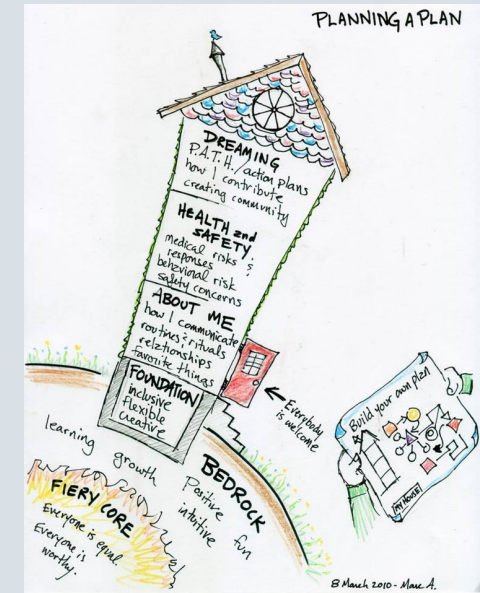 PLANNING A PLAN
DREAMING
P.A.T.H./action plans
how I contribute
creating community
HEALTH and
SAFETY:
medical risks &
responses
behavioral risk
safety concerns
ABOUT ME
how I communicate
routines & rituals
relationships
favorite things
FOUNDATION
inclusive
flexible
creative
Everybody
is welcome
Build your own plan
MY HOUSE!
learning
growth
BEDROCK
Positive
intuitive
fun
FIERY CORE
Everyone is equal.
Everyone is
worthy.
8 March 2010 - Marc A.